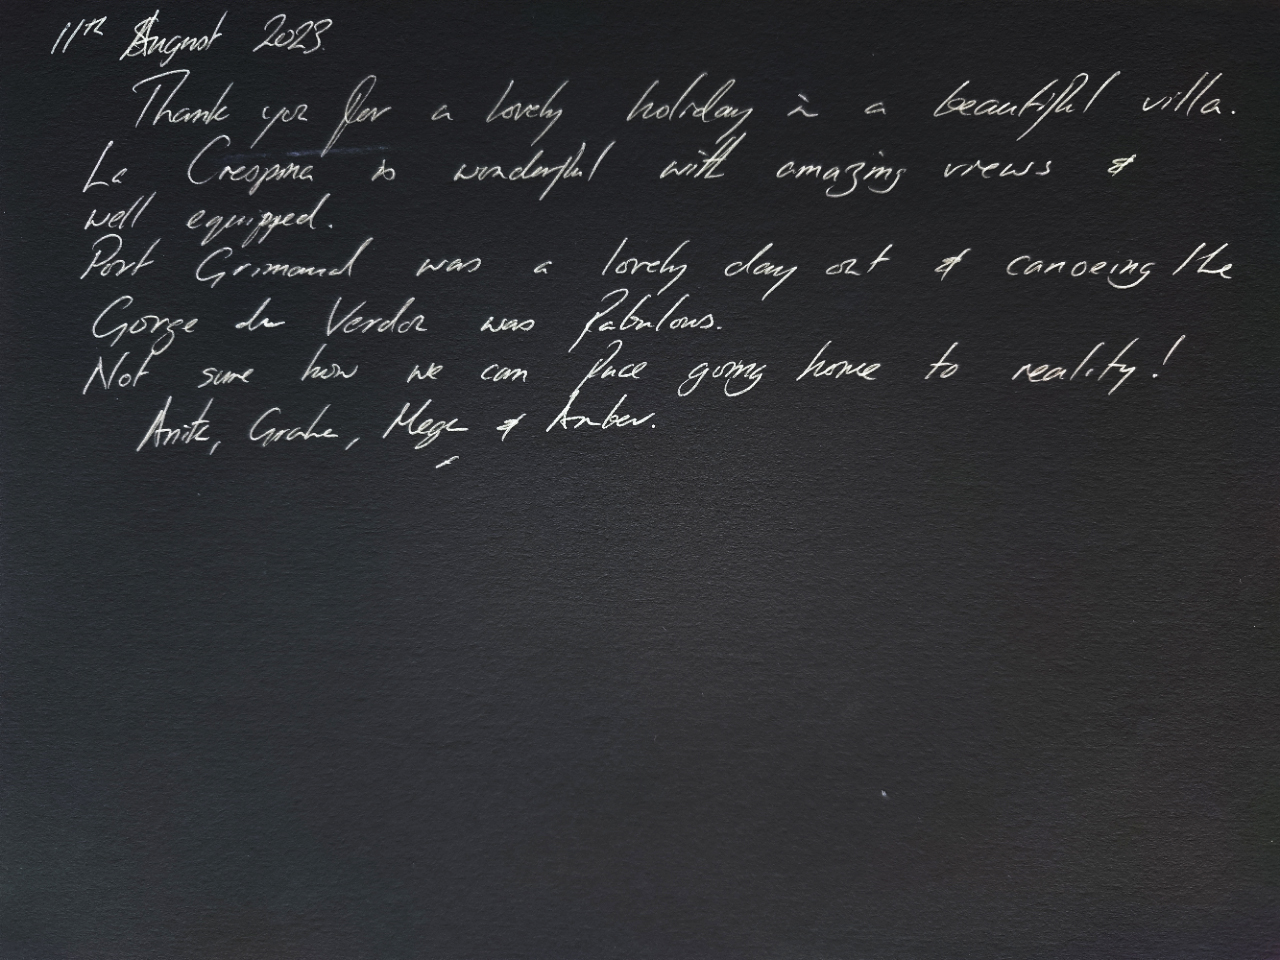 11th August 2023.
Thank you for a lovely holiday in a beautiful villa.
La Crespina is wonderful with amazing views &
well equipped.
Port Grimaud was a lovely day out & canoeing the
Gorge du Verdon was fabulous.
Not sure how we can face going home to reality!
Anita, Graham, Megan & Amber.